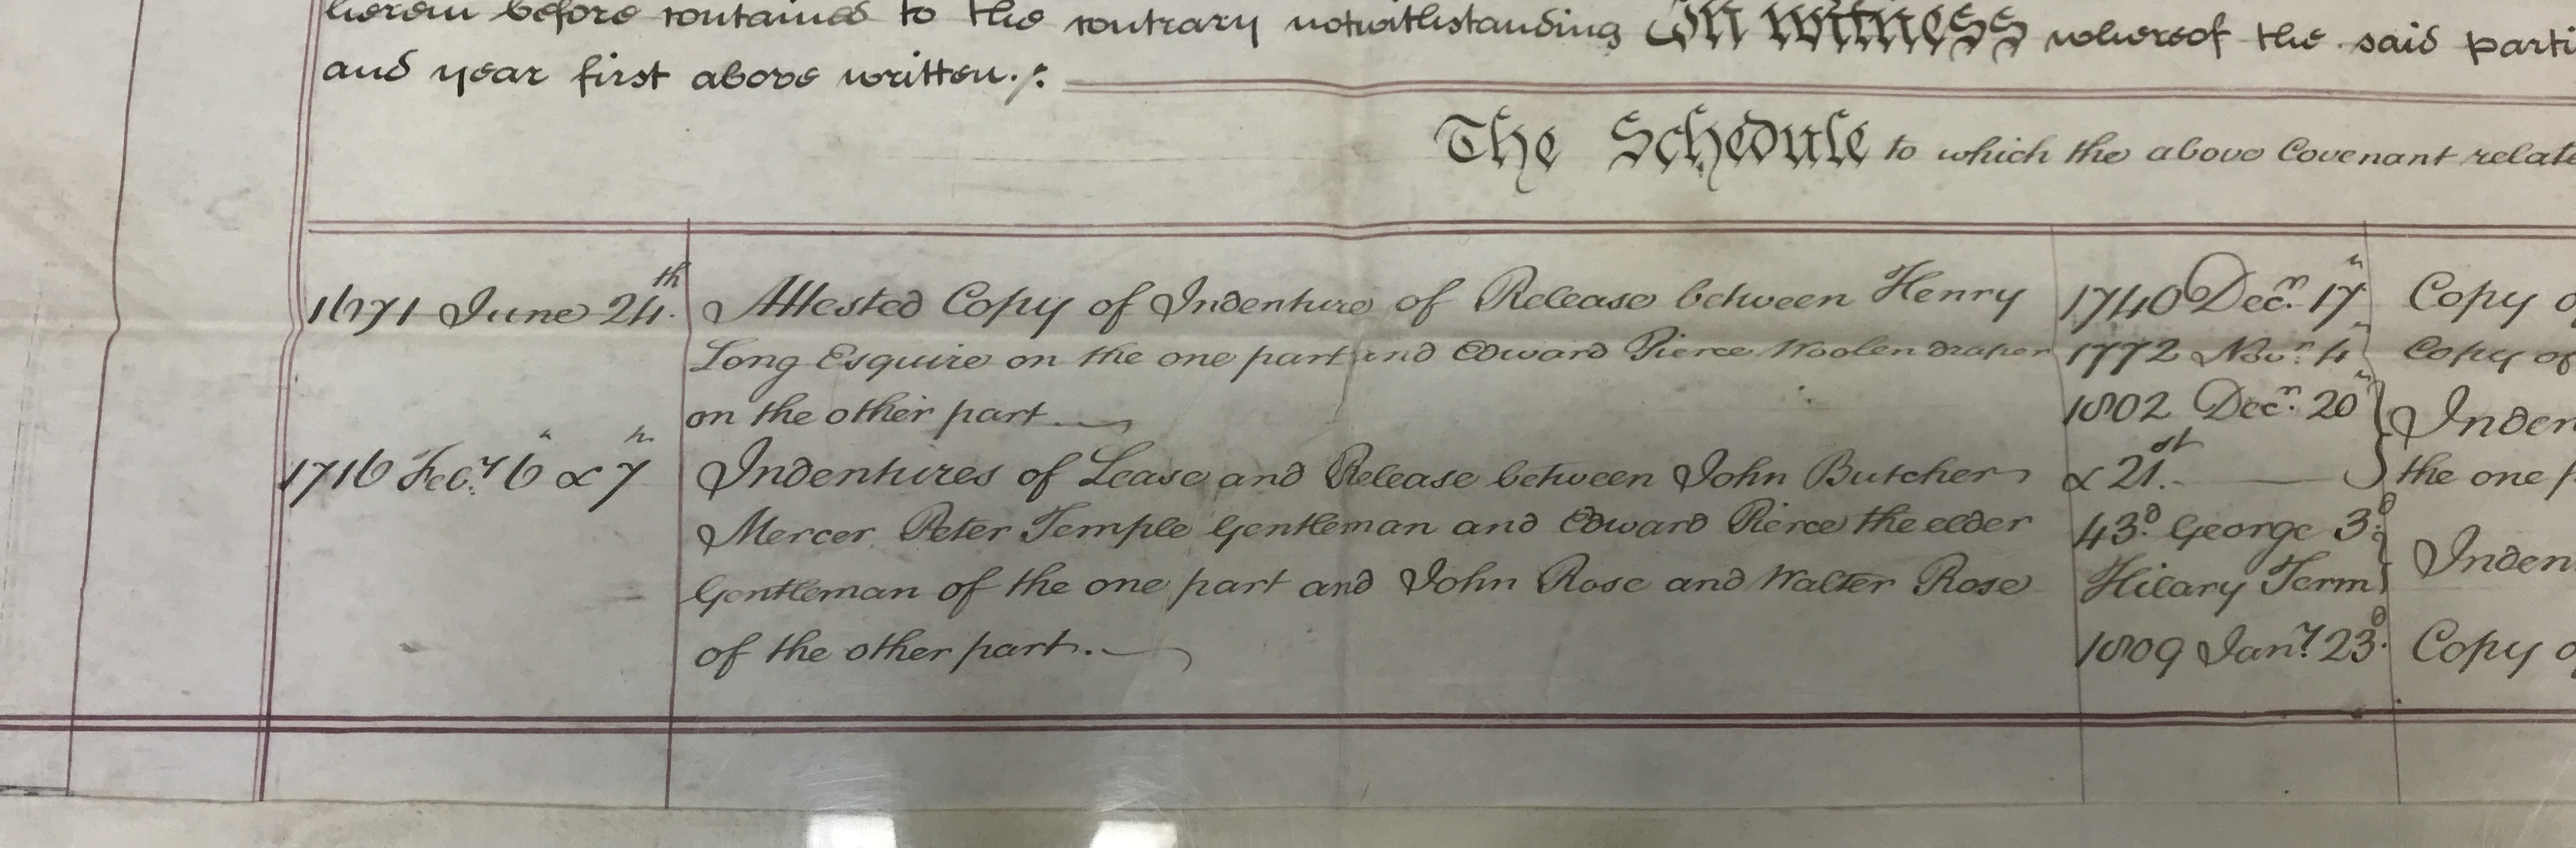 herein before contained to the contrary notwithstanding In Witness whereof the said parti
and year first above written./:
The Schedule to which the above Covenant relate
1671 June 24th. Attested Copy of Indenture of Release between Henry
Long Esquire on the one part and Edward Pierce Woolen draper
on the other part
1716 Feby. 6th & 7th Indentures of Lease and Release between John Butcher
Mercer Peter Temple Gentleman and Edward Pierce the elder
Gentleman of the one part and John Rose and Walter Rose
of the other part.
1740 Decr. 17th Copy o
1772 Novr. 4th Copy of
1802 Decr. 20th } Inden
& 21st. the one p
43d. George 3d. } Inden
Hilary Term
1809 Jany. 23d. Copy o